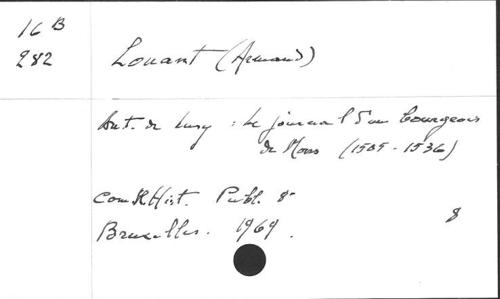 16 B
282
Louant (Armand)
Ant. de Lusy : Le journal d'un bourgeois
de Mons (1505-1536)
Com R Hist. Publ. 8°
Bruxelles. 1969.
8